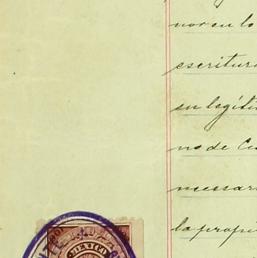 nor en lo
escritur
en legíti
no de Ce
necesar
la propi
MEXICO